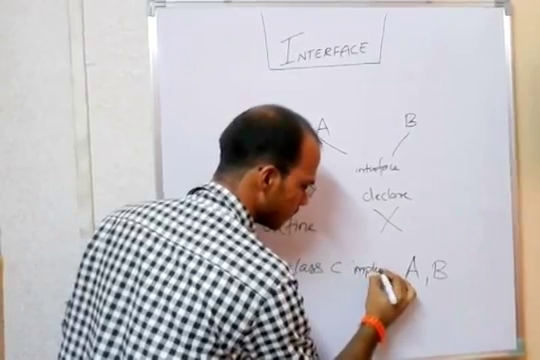 INTERFACE
A B
interface
declare
class C imple A, B